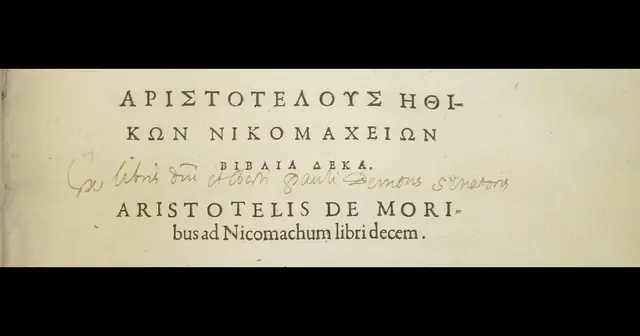 ΑΡΙΣΤΟΤΕΛΟΥΣ ΗΘΙ-
ΚΩΝ ΝΙΚΟΜΑΧΕΙΩΝ
ΒΙΒΛΙΑ ΔΕΚΑ.
libris pauli senatoris
ARISTOTELIS DE MORI-
bus ad Nicomachum libri decem.